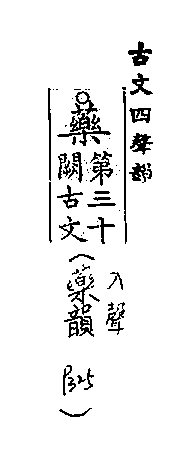 古文四聲韻
藥
第三十
闕古文
(
入聲
藥韻
)